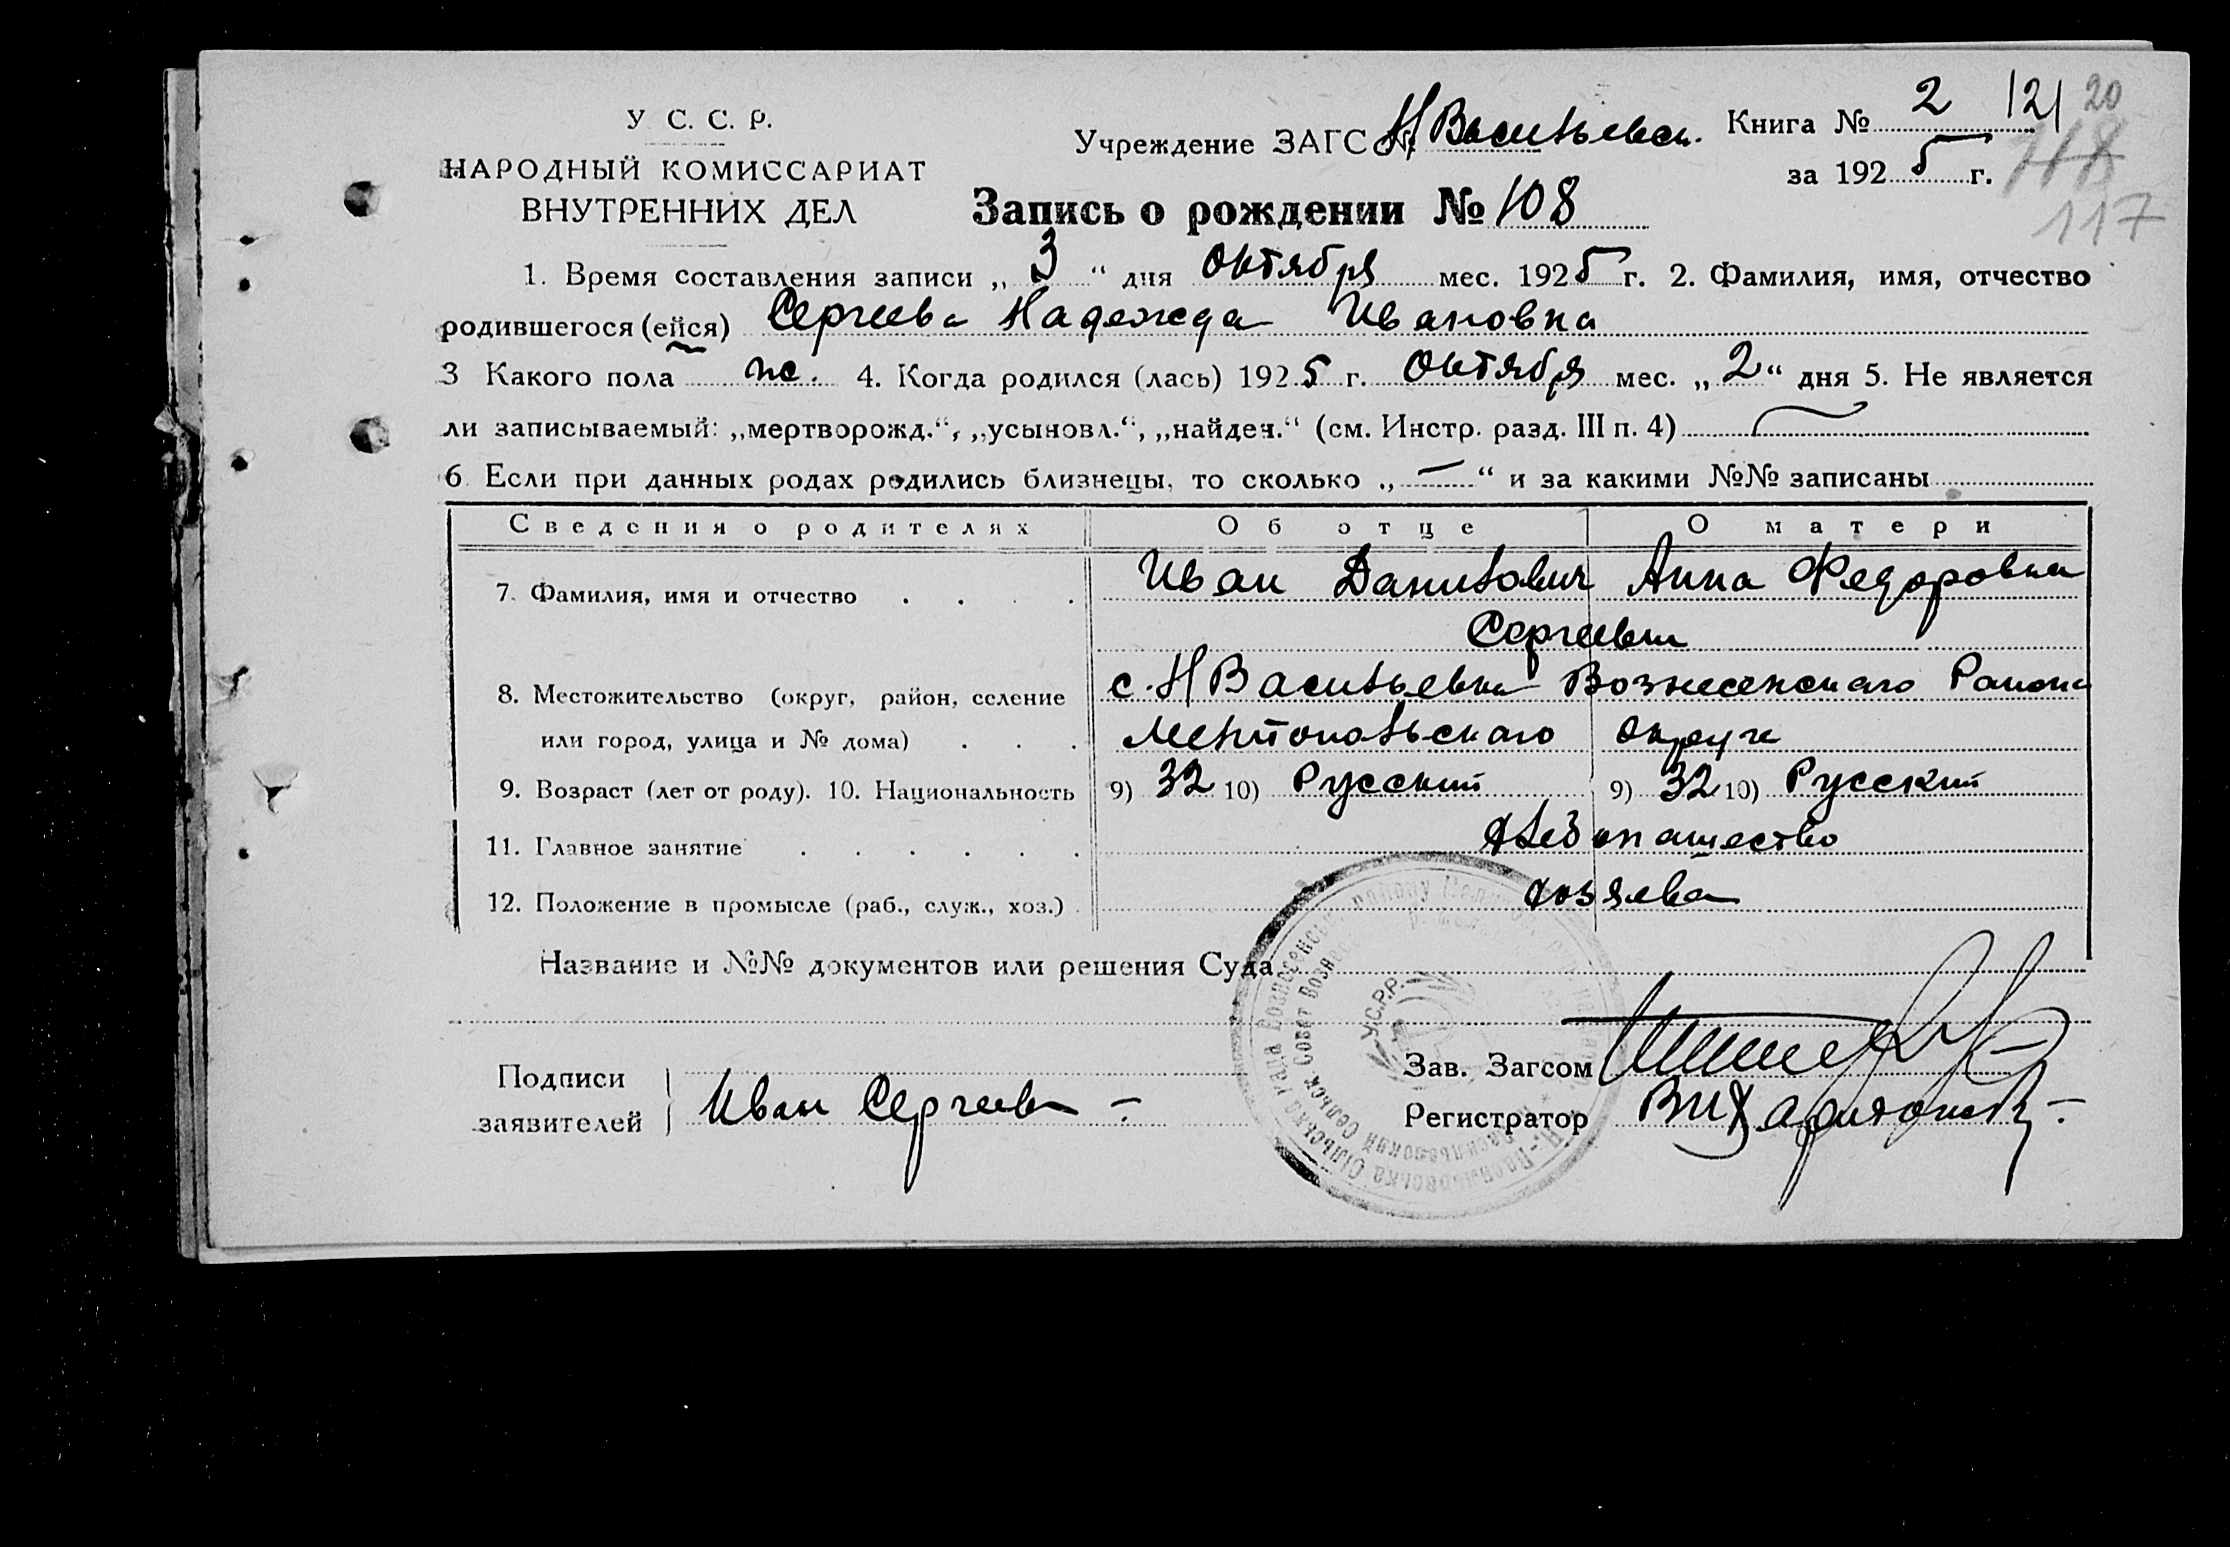 У С. С. Р.
НАРОДНЫЙ КОМИССАРИАТ
ВНУТРЕННИХ ДЕЛ
Учреждение ЗАГС Н Васильевск.
Книга № 2 121 20
за 1925 г. 118
117
Запись о рождении № 108
1. Время составления записи „ 3 “ дня Октября мес. 1925 г. 2. Фамилия, имя, отчество
родившегося (ейся) Сергеева Надежда Ивановна
3 Какого пола ж. 4. Когда родился (лась) 1925 г. Октября мес. „ 2 “ дня 5. Не является
ли записываемый: „мертворожд.“, „усыновл.“, „найден.“ (см. Инстр. разд. III п. 4)
6 Если при данных родах родились близнецы, то сколько „ — “ и за какими №№ записаны
Сведения о родителях Об отце О матери
7. Фамилия, имя и отчество . . . . Иван Данилович Анна Федоровна
Сергеевы
8. Местожительство (округ, район, селение с. Н Васильевка Вознесенского Района
или город, улица и № дома) . . . Мелитопольского округа
9. Возраст (лет от роду). 10. Национальность 9) 32 10) Русский 9) 32 10) Русский
11. Главное занятие . . . . . . Хлебопашество
12. Положение в промысле (раб., служ., хоз.) . хозяева
Название и №№ документов или решения Суда
У.С.Р.Р.
Подписи
заявителей Иван Сергеев
Зав. Загсом
Регистратор